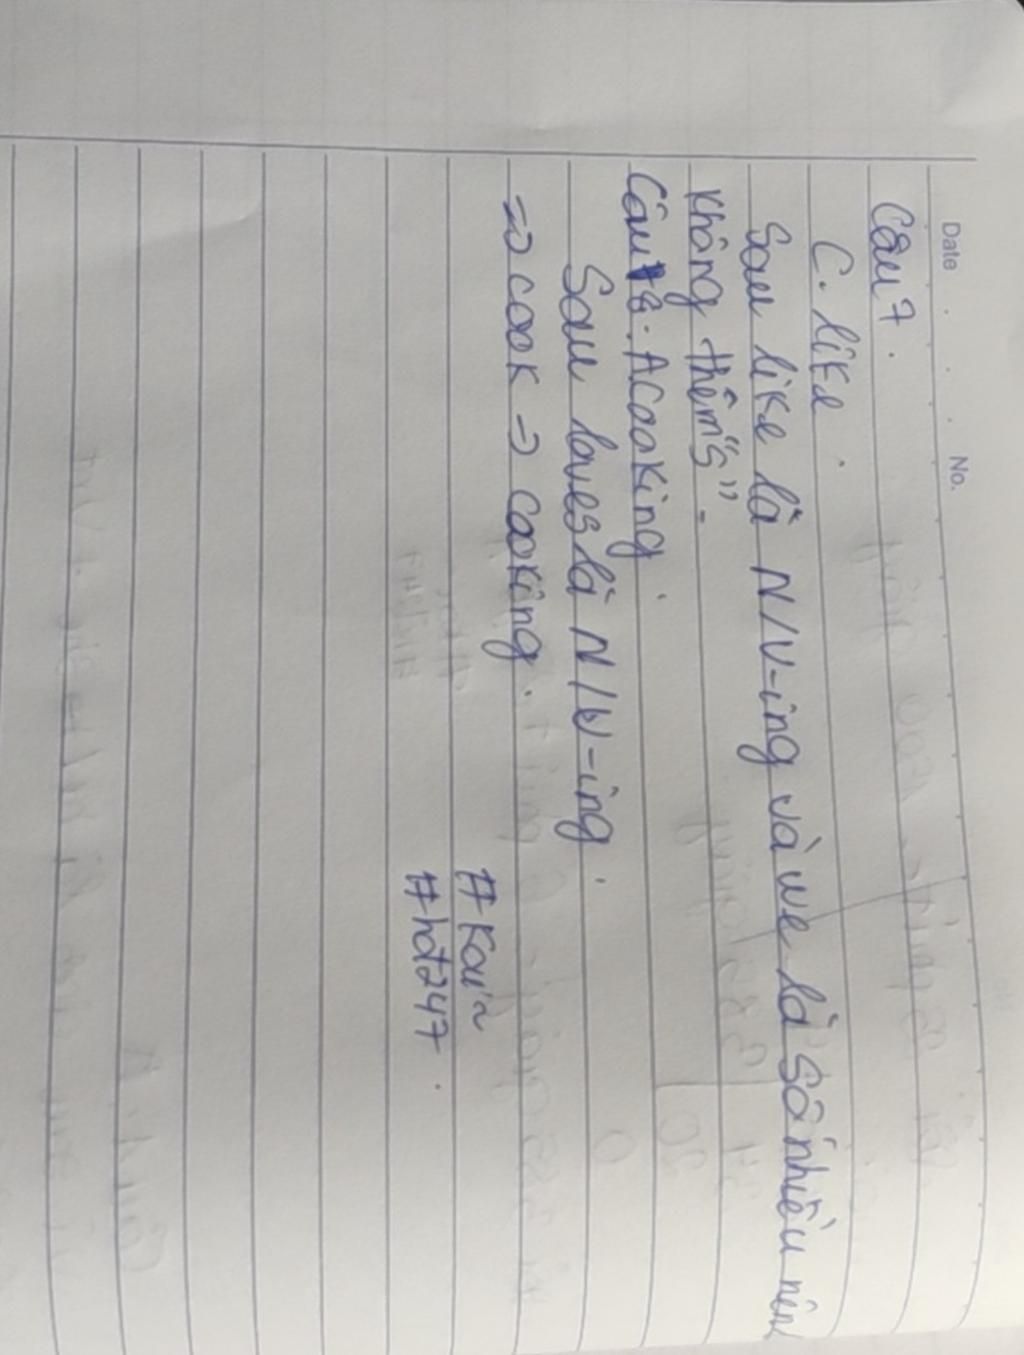 Date No.
Câu 7.
C. like.
Sau like là N/V-ing và we là số nhiều nên
không thêm "s".
Câu 8: A cooking.
Sau loves là N/V-ing.
=> cook => cooking.
#hđ247.